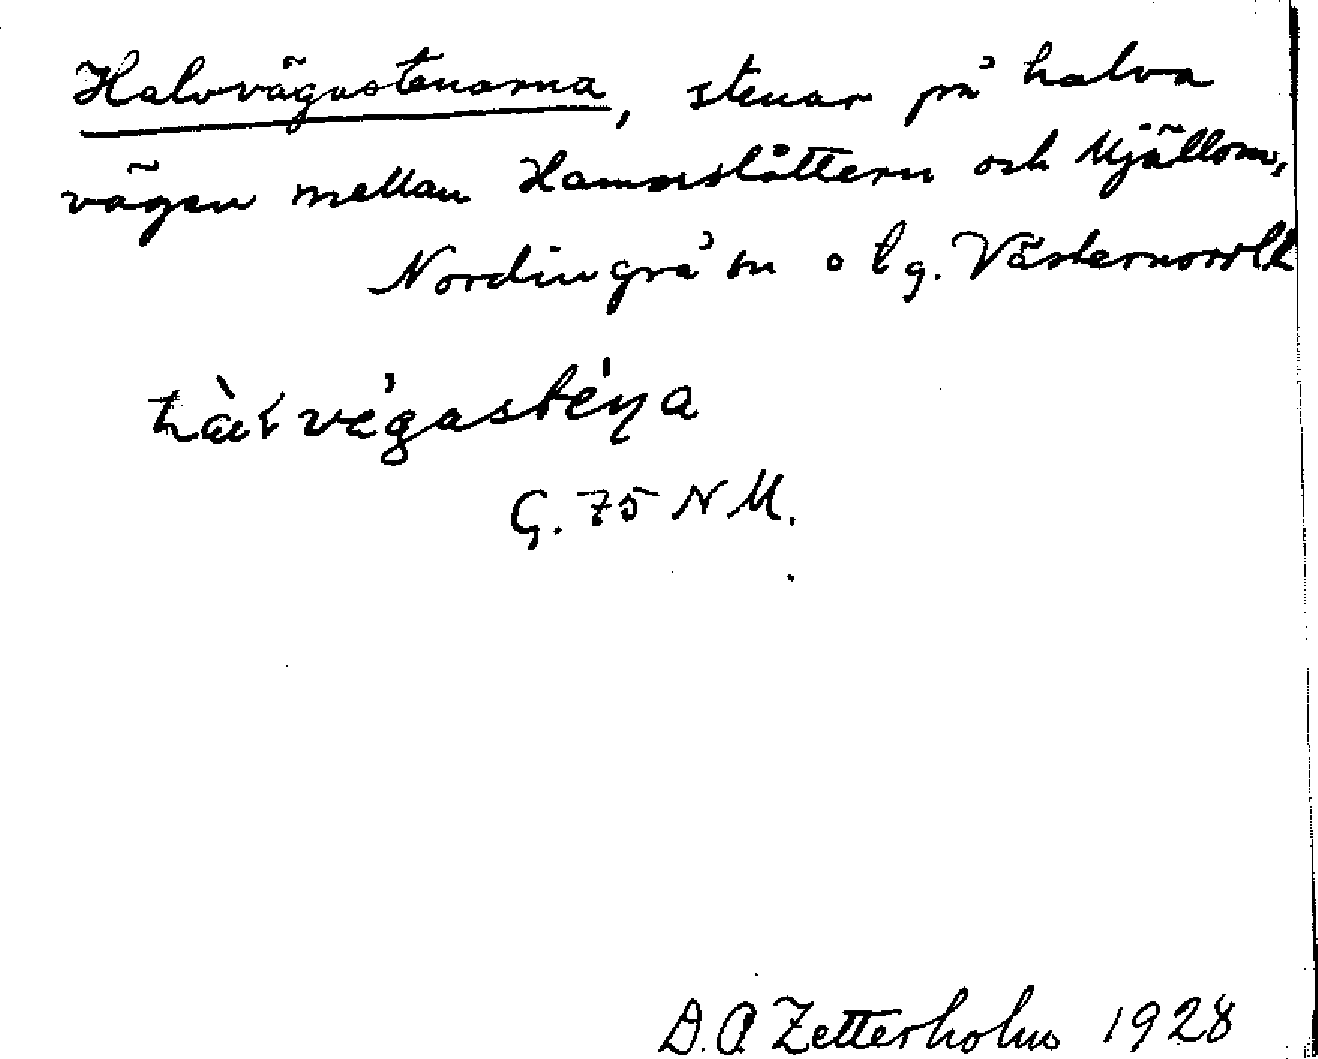 Halvvägastenarna, stenar på halva
vägen mellan Hamnslåttern och Mjällom,
Nordingrå sn o tg. Västernorrl. l.
hàɫvé̀gasténa
G. 75 N M.
D. O. Zetterholm 1928